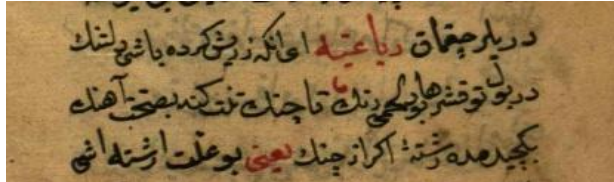 دریلر چقماق رباعیه ای انکه زریش کرده باشی دلتنك
در بول تو قشرها بود لحمی رنك تا چنك تنت کند بصحت آهنك
رشته اکر از چنك یعنی بو علت ارشته اشی